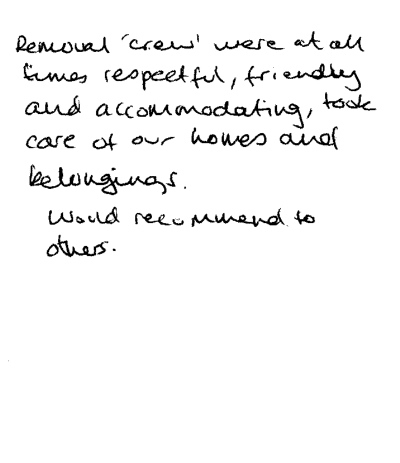 Removal 'crew' were at all
times respectful, friendly
and accommodating, took
care of our homes and
belongings.
Would recommend to
others.